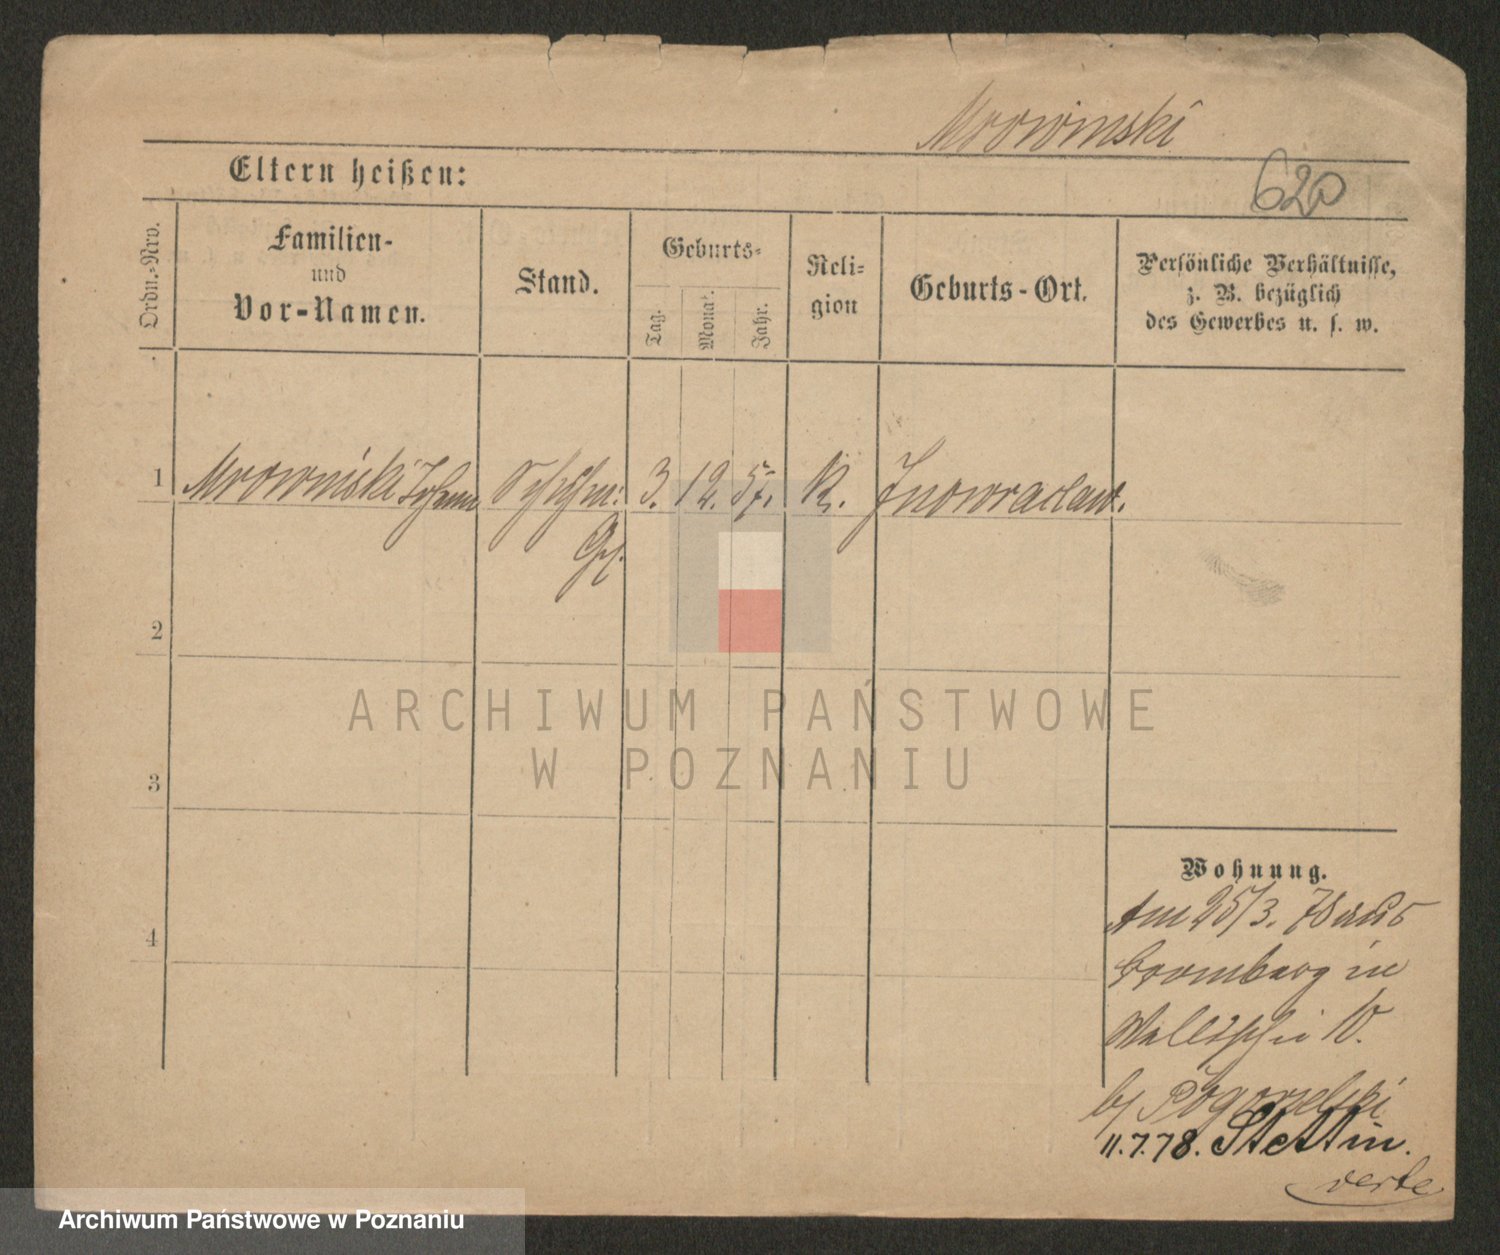 Mrowinski
Eltern heißen:
620
Ordn.-Nro.
Familien-
und
Vor-Namen.
Stand.
Geburts-
Tag.
Monat.
Jahr.
Reli-
gion
Geburts-Ort.
Persönliche Verhältnisse,
z. B. bezüglich
des Gewerbes u. s. w.
1 Mrowiński Johann 3. 12. 57. K. Inowraclaw.
Gs.
2
ARCHIWUM PAŃSTWOWE
W POZNANIU
3
Wohnung.
Am 25/3. 78 aus
4
Bromberg in
Wallischei 10.
b/ Pogorzelski
11.7.78. Stettin.
verte
Archiwum Państwowe w Poznaniu